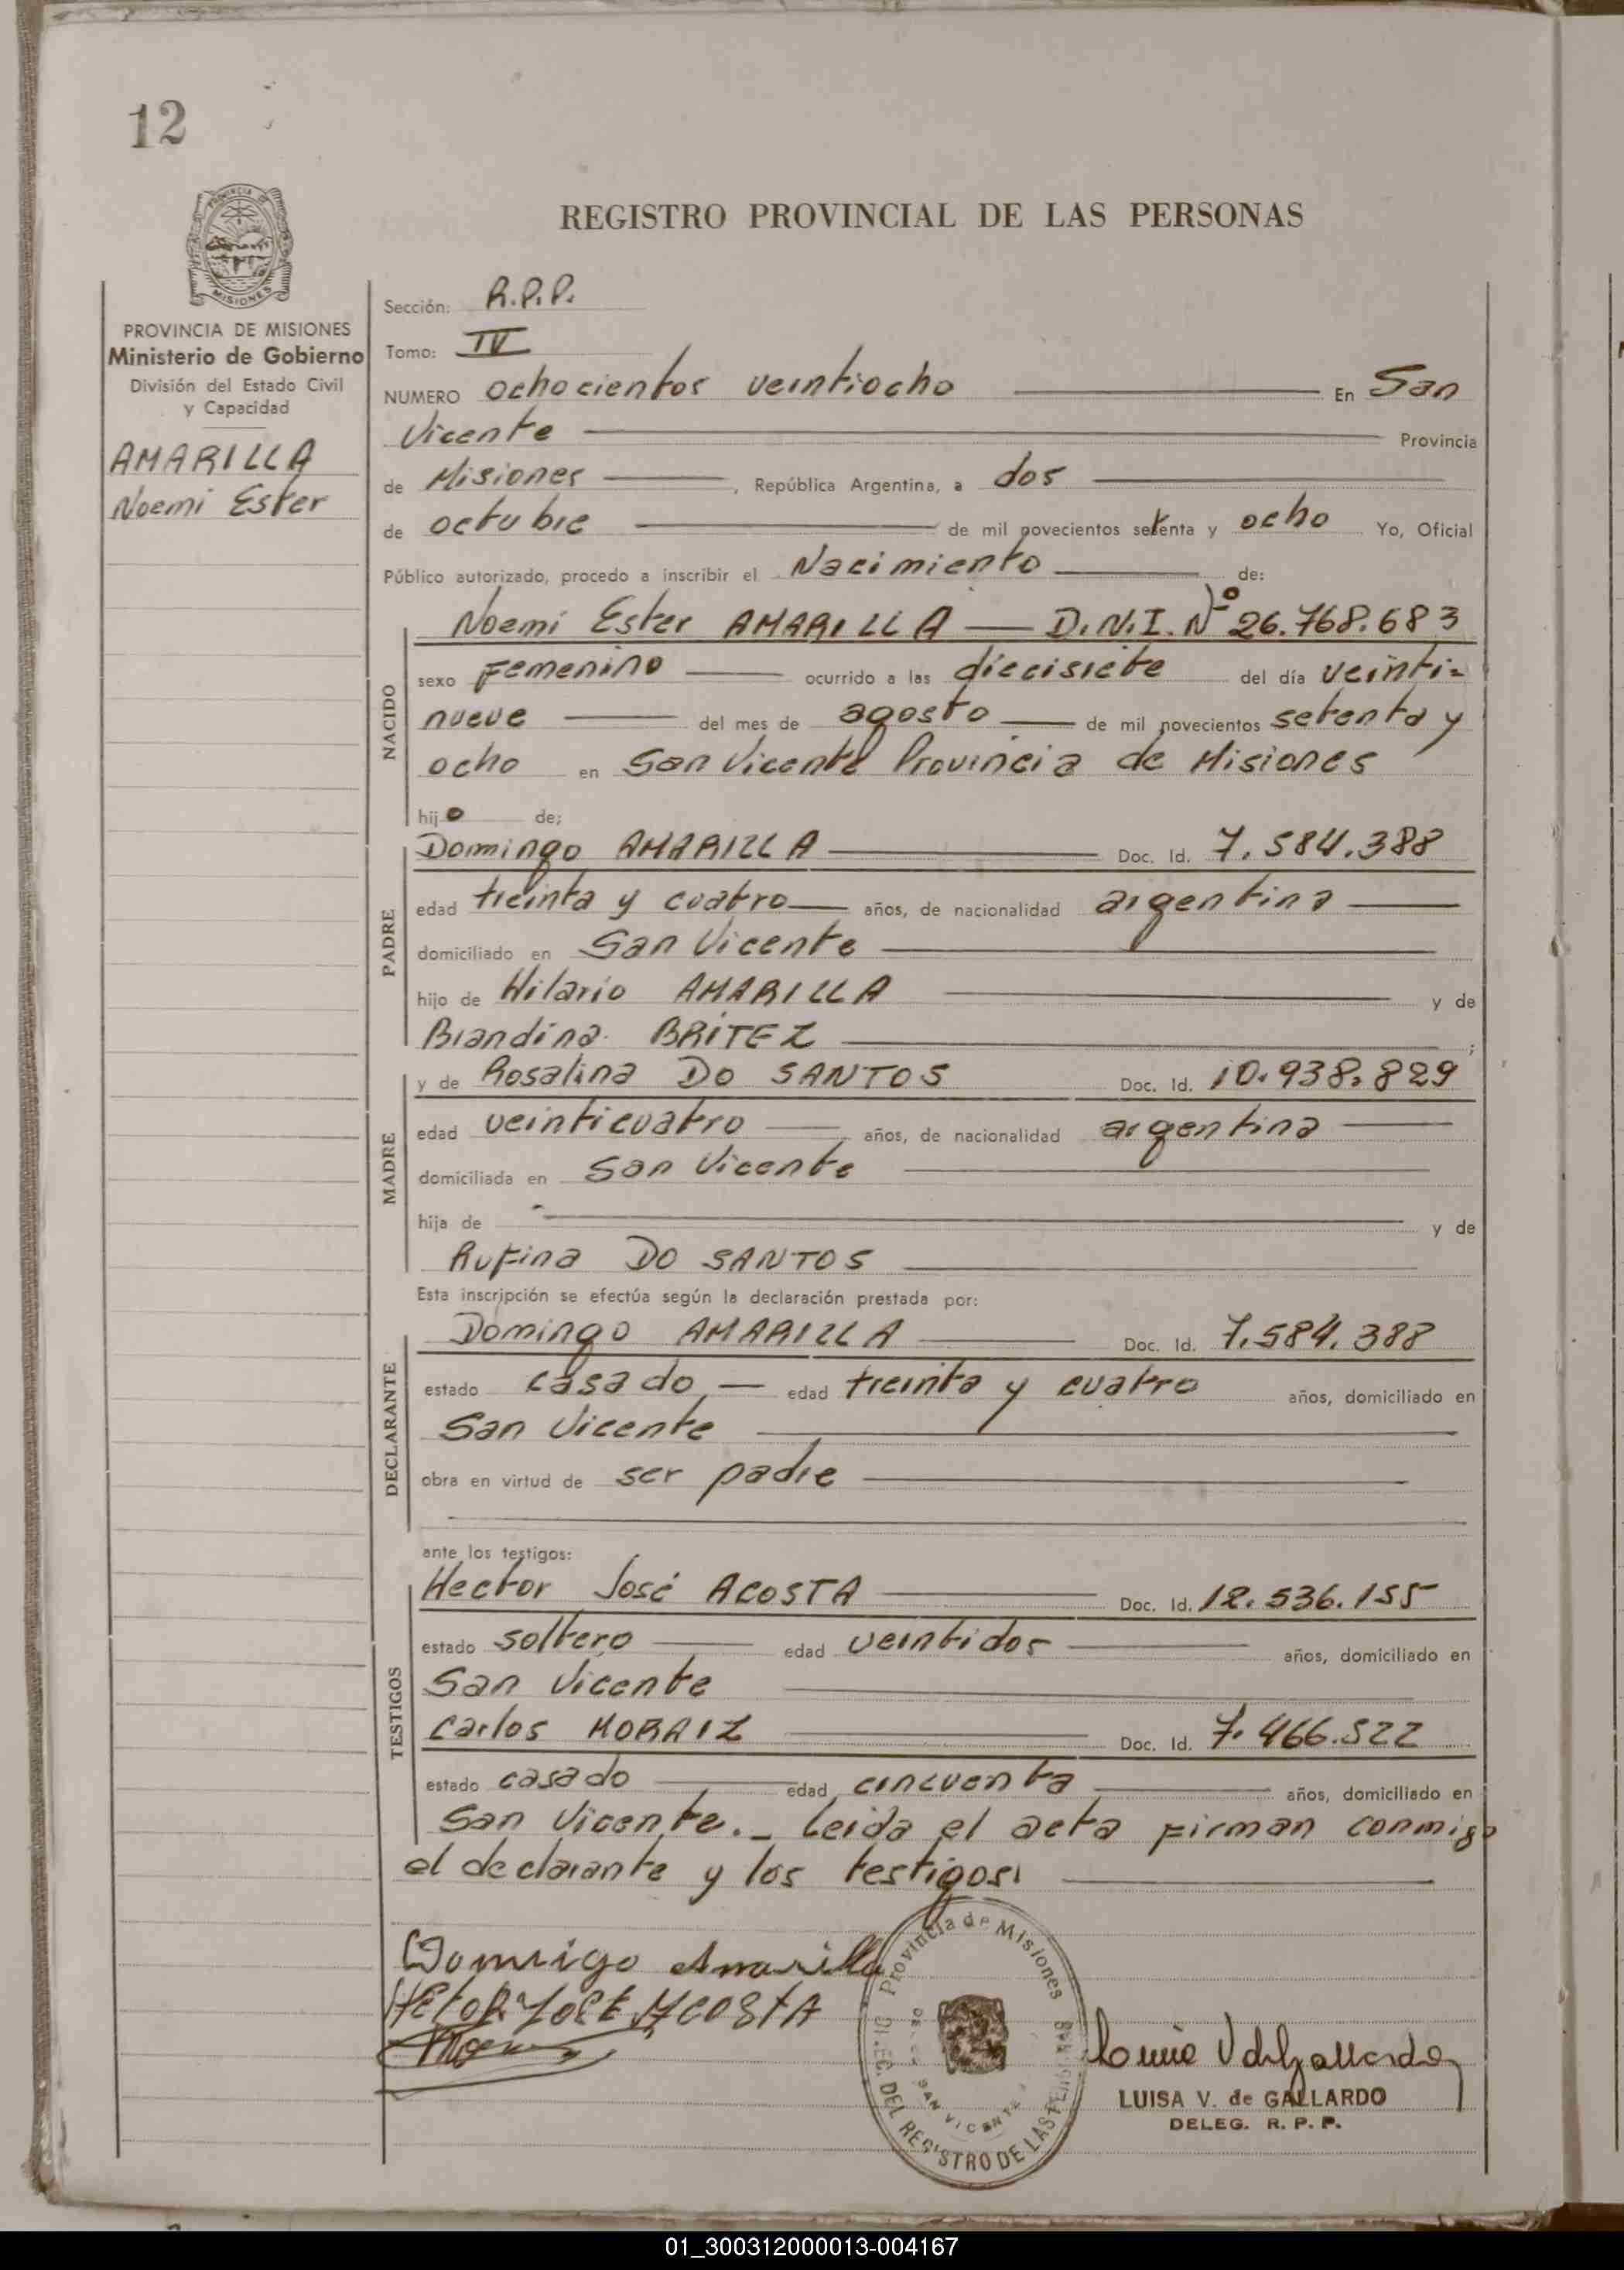 12
REGISTRO PROVINCIAL DE LAS PERSONAS
PROVINCIA DE MISIONES
Ministerio de Gobierno
División del Estado Civil
y Capacidad
AMARILLA
Noemi Ester
Sección: R.P.P.
Tomo: IV
NUMERO ochocientos veintiocho En San
Vicente Provincia
de Misiones, República Argentina, a dos
de octubre de mil novecientos setenta y ocho Yo, Oficial
Público autorizado, procedo a inscribir el Nacimiento de:
Noemi Ester AMARILLA — D.N.I. Nº 26.768.683
NACIDO
sexo Femenino ocurrido a las diecisiete del día veinti-
nueve del mes de agosto de mil novecientos setenta y
ocho en San Vicente Provincia de Misiones
hijo de;
PADRE
Domingo AMARILLA Doc. Id. 7.584.388
edad treinta y cuatro años, de nacionalidad argentina
domiciliado en San Vicente
hijo de Hilario AMARILLA y de
Brandina BRÍTEZ ;
MADRE
y de Rosalina DO SANTOS Doc. Id. 10.938.829
edad veinticuatro años, de nacionalidad argentina
domiciliada en San Vicente
hija de y de
Rufina DO SANTOS
Esta inscripción se efectúa según la declaración prestada por:
DECLARANTE
Domingo AMARILLA Doc. Id. 7.584.388
estado casado, — edad treinta y cuatro años, domiciliado en
San Vicente
obra en virtud de ser padre
ante los testigos:
TESTIGOS
Hector José ACOSTA Doc. Id. 12.536.155
estado soltero edad veintidos años, domiciliado en
San Vicente
Carlos MORAIZ Doc. Id. 7.466.522
estado casado edad cincuenta años, domiciliado en
San Vicente._ Leida el acta firman conmigo
el declarante y los testigos.
Domingo Amarilla
HECTOR JOSE ACOSTA
Provincia de Misiones
DIREC. DEL REGISTRO DE LAS PERSONAS
SAN VICENTE
LUISA V. de GALLARDO
DELEG. R. P. P.
01_300312000013-004167